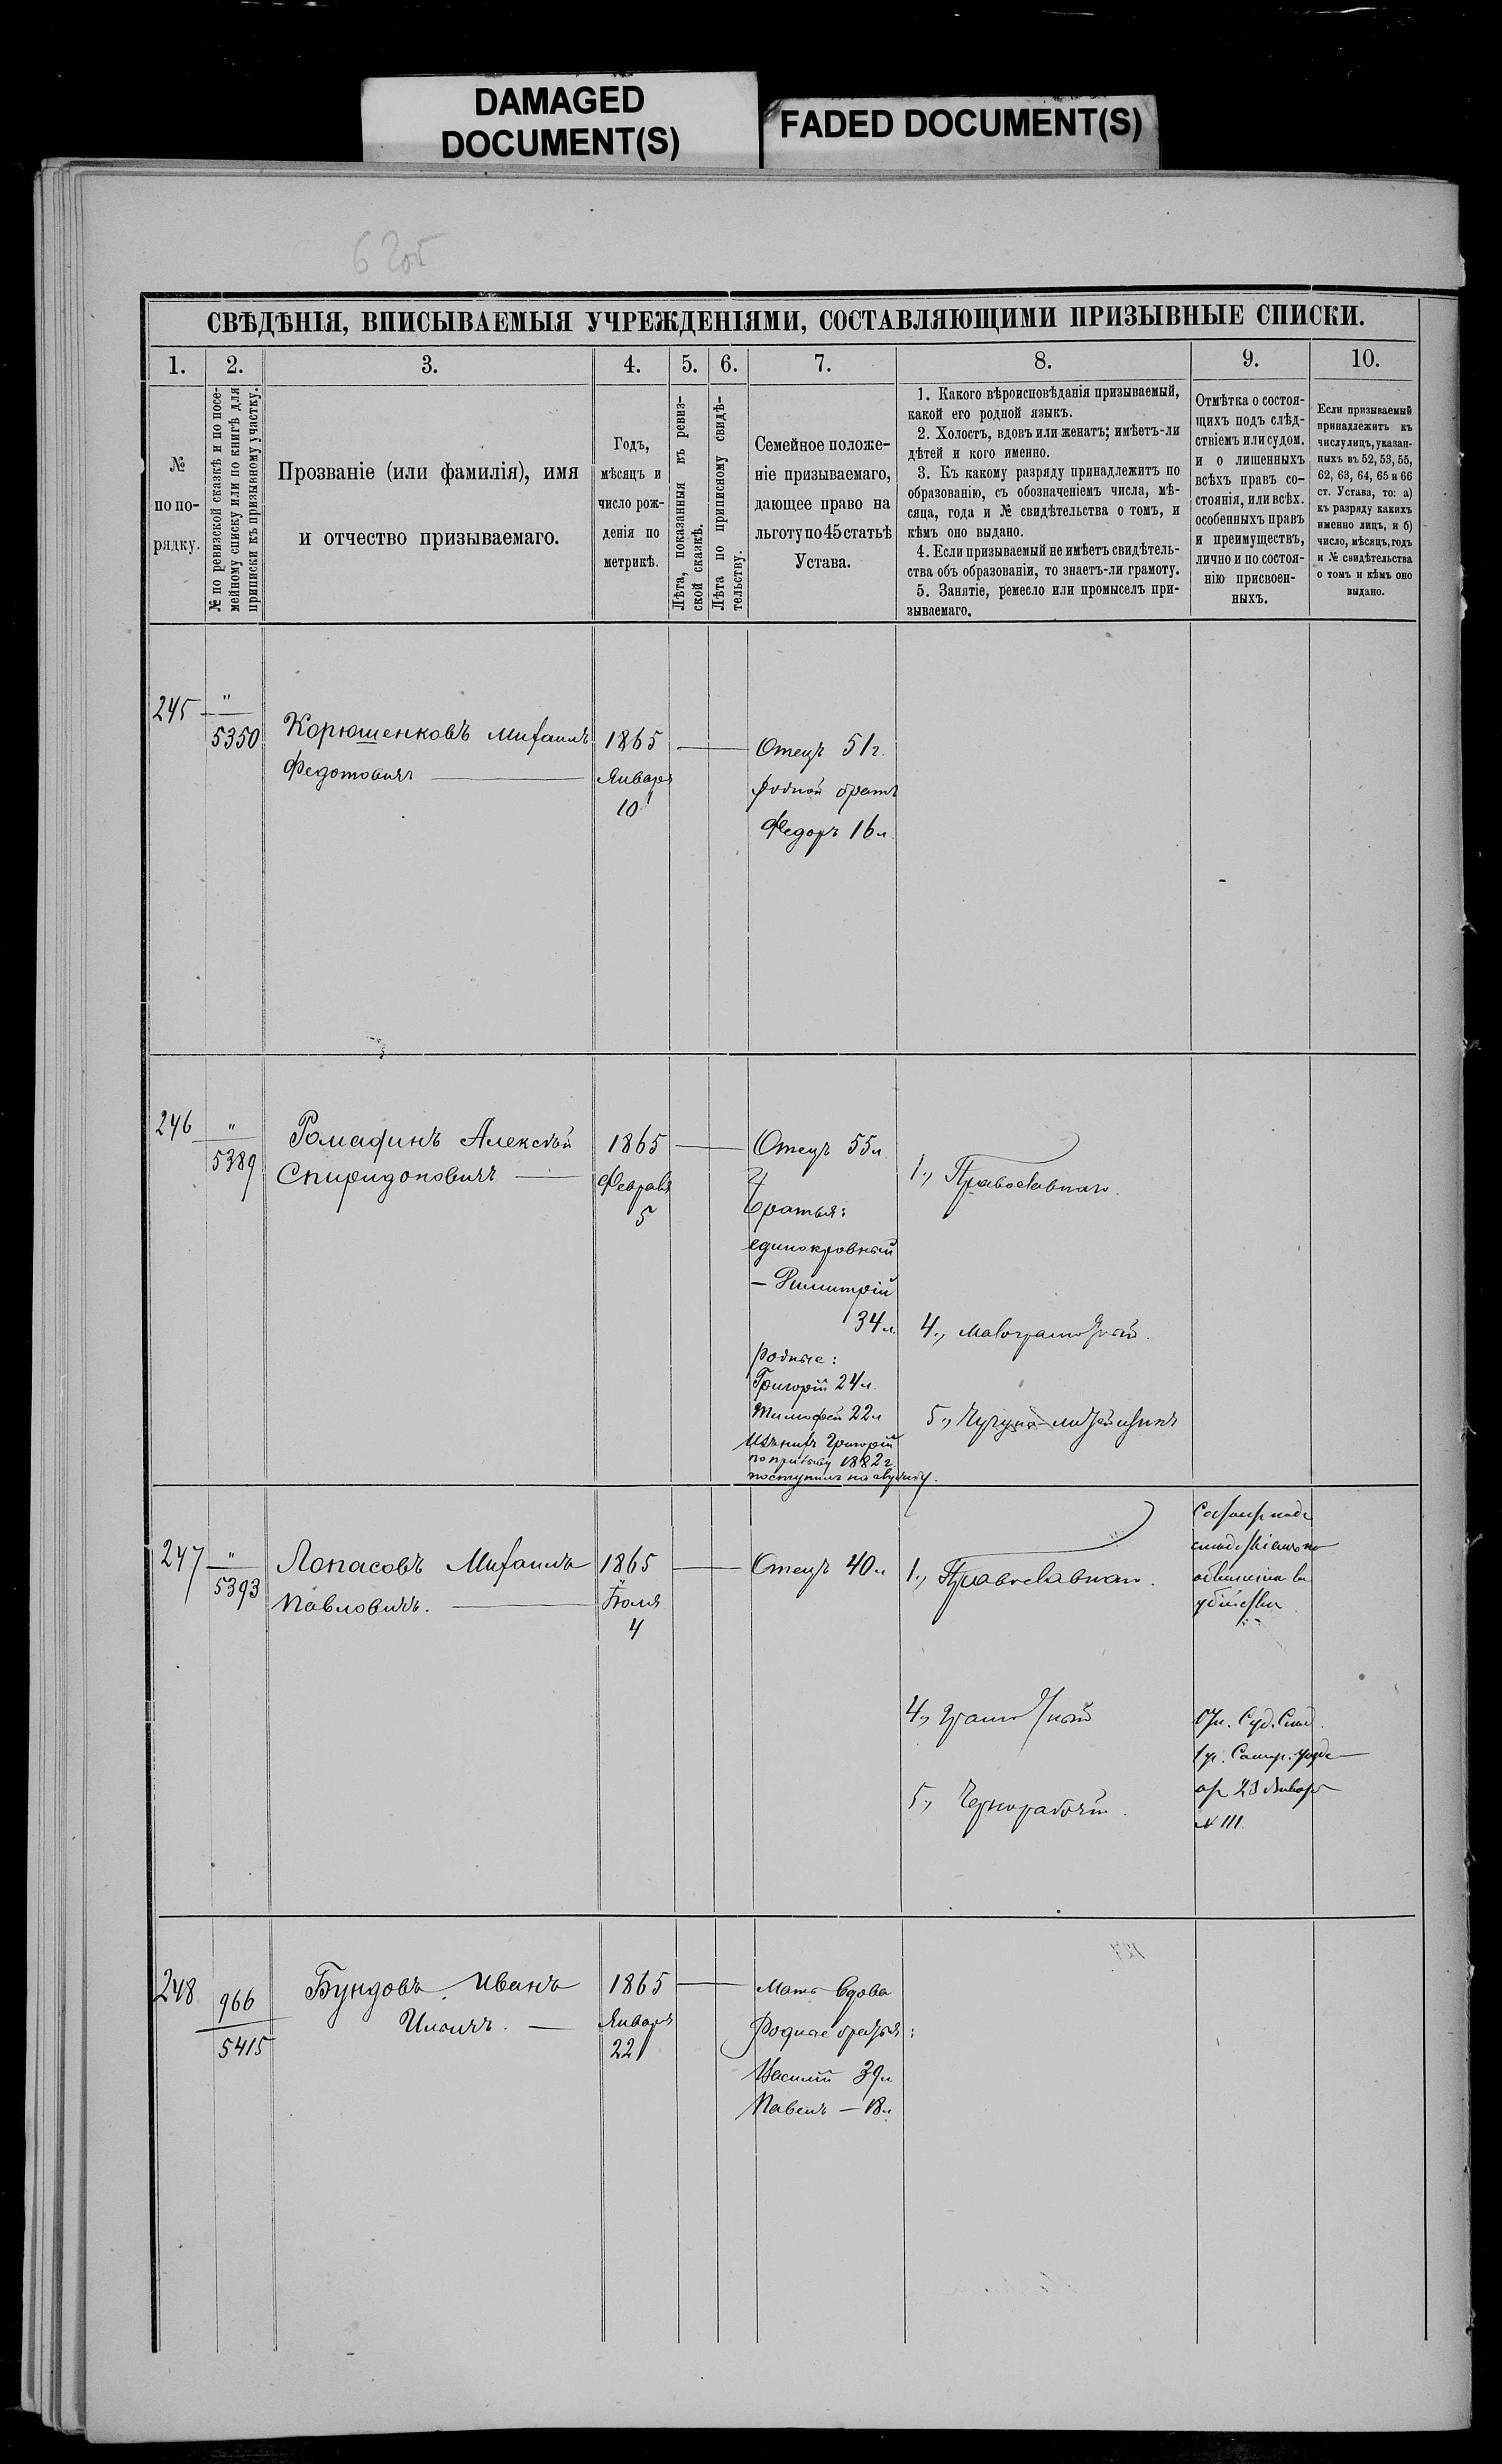 DAMAGED
DOCUMENT(S)
FADED DOCUMENT(S)
СВѢДѢНІЯ, ВПИСЫВАЕМЫЯ УЧРЕЖДЕНІЯМИ, СОСТАВЛЯЮЩИМИ ПРИЗЫВНЫЕ СПИСКИ.
1. 2. 3. 4. 5. 6. 7. 8. 9. 10.
№
по по-
рядку.
№ по ревизской сказкѣ и по посе-
мейному списку или по книгѣ для
приписки къ призывному участку.
Прозваніе (или фамилія), имя
и отчество призываемаго.
Годъ,
мѣсяцъ и
число рож-
денія по
метрикѣ.
Лѣта, показанныя въ ревиз-
ской сказкѣ.
Лѣта по приписному свидѣ-
тельству.
Семейное положе-
ніе призываемаго,
дающее право на
льготу по 45 статьѣ
Устава.
1. Какого вѣроисповѣданія призываемый,
какой его родной языкъ.
2. Холостъ, вдовъ или женатъ; имѣетъ-ли
дѣтей и кого именно.
3. Къ какому разряду принадлежитъ по
образованію, съ обозначеніемъ числа, мѣ-
сяца, года и № свидѣтельства о томъ, и
кѣмъ оно выдано.
4. Если призываемый не имѣетъ свидѣтель-
ства объ образованіи, то знаетъ-ли грамоту.
5. Занятіе, ремесло или промыселъ при-
зываемаго.
Отмѣтка о состоя-
щихъ подъ слѣд-
ствіемъ или судом.
и о лишенныхъ
всѣхъ правъ со-
стоянія, или всѣх.
особенныхъ правъ
и преимуществъ,
лично и по состоя-
нію присвоен-
ныхъ.
Если призываемый
принадлежитъ къ
числу лицъ, указан-
ныхъ въ 52, 53, 55,
62, 63, 64, 65 и 66
ст. Устава, то: а)
къ разряду какихъ
именно лицъ, и б)
число, мѣсяцъ, годъ
и № свидѣтельства
о томъ и кѣмъ оно
выдано.
245
"
5350
Корюшенковъ Михаилъ
Федотовичъ
1865
Января
10
Отецъ 51 г.
родной братъ
Федоръ 16 л.
246
"
5389
Ромафинъ Алексѣй
Спиридоновичъ
1865
Февраля
5
Отецъ 55 л.
Братья:
единокровный
— Димитрій
34 л.
родные:
Григорій 24 л.
Тимофей 22 л
Изъ нихъ Григорій
по призыву 1882 г.
поступилъ на службу.
1., Православнаго.
4., Малограмотный.
5., Чугуно-литейщикъ
247
"
5393
Лопасовъ Михаилъ
Павловичъ.
1865
Іюля
4
Отецъ 40 л
1., Православнаго.
4., Грамотный
5., Чернорабочій.
Состоитъ подъ
слѣдствіемъ по
обвиненію въ
убійствѣ
От. Суд. Слѣд.
1 уч.
от 23 Января
№ 111.
248
966
5415
Бундовъ Иванъ
Ильичъ.
1865
Января
22
Мать вдова
Родные братья:
Василій 39 л
Павелъ — 18 л.